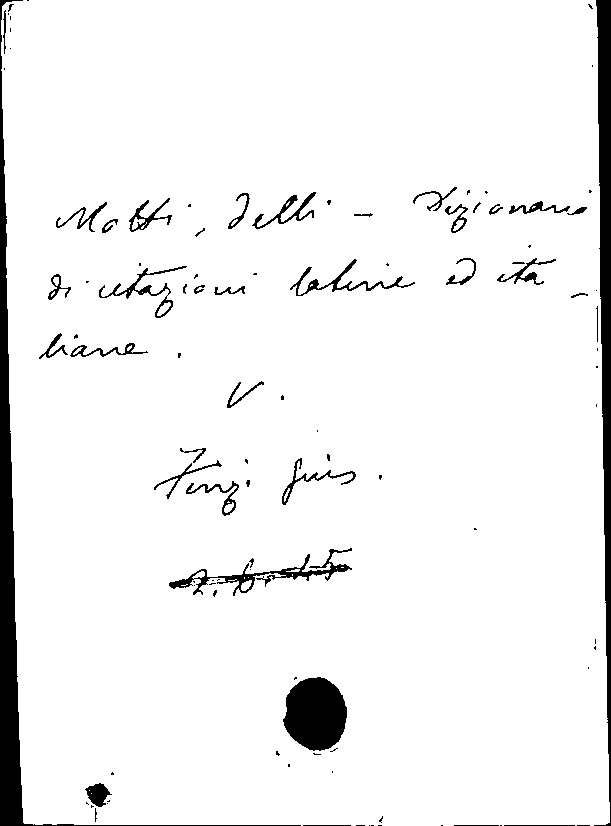 Motti, delli - Dizionario
di citazioni latine ed ita-
liane.
V.
Finzi Gius.
2.6.45